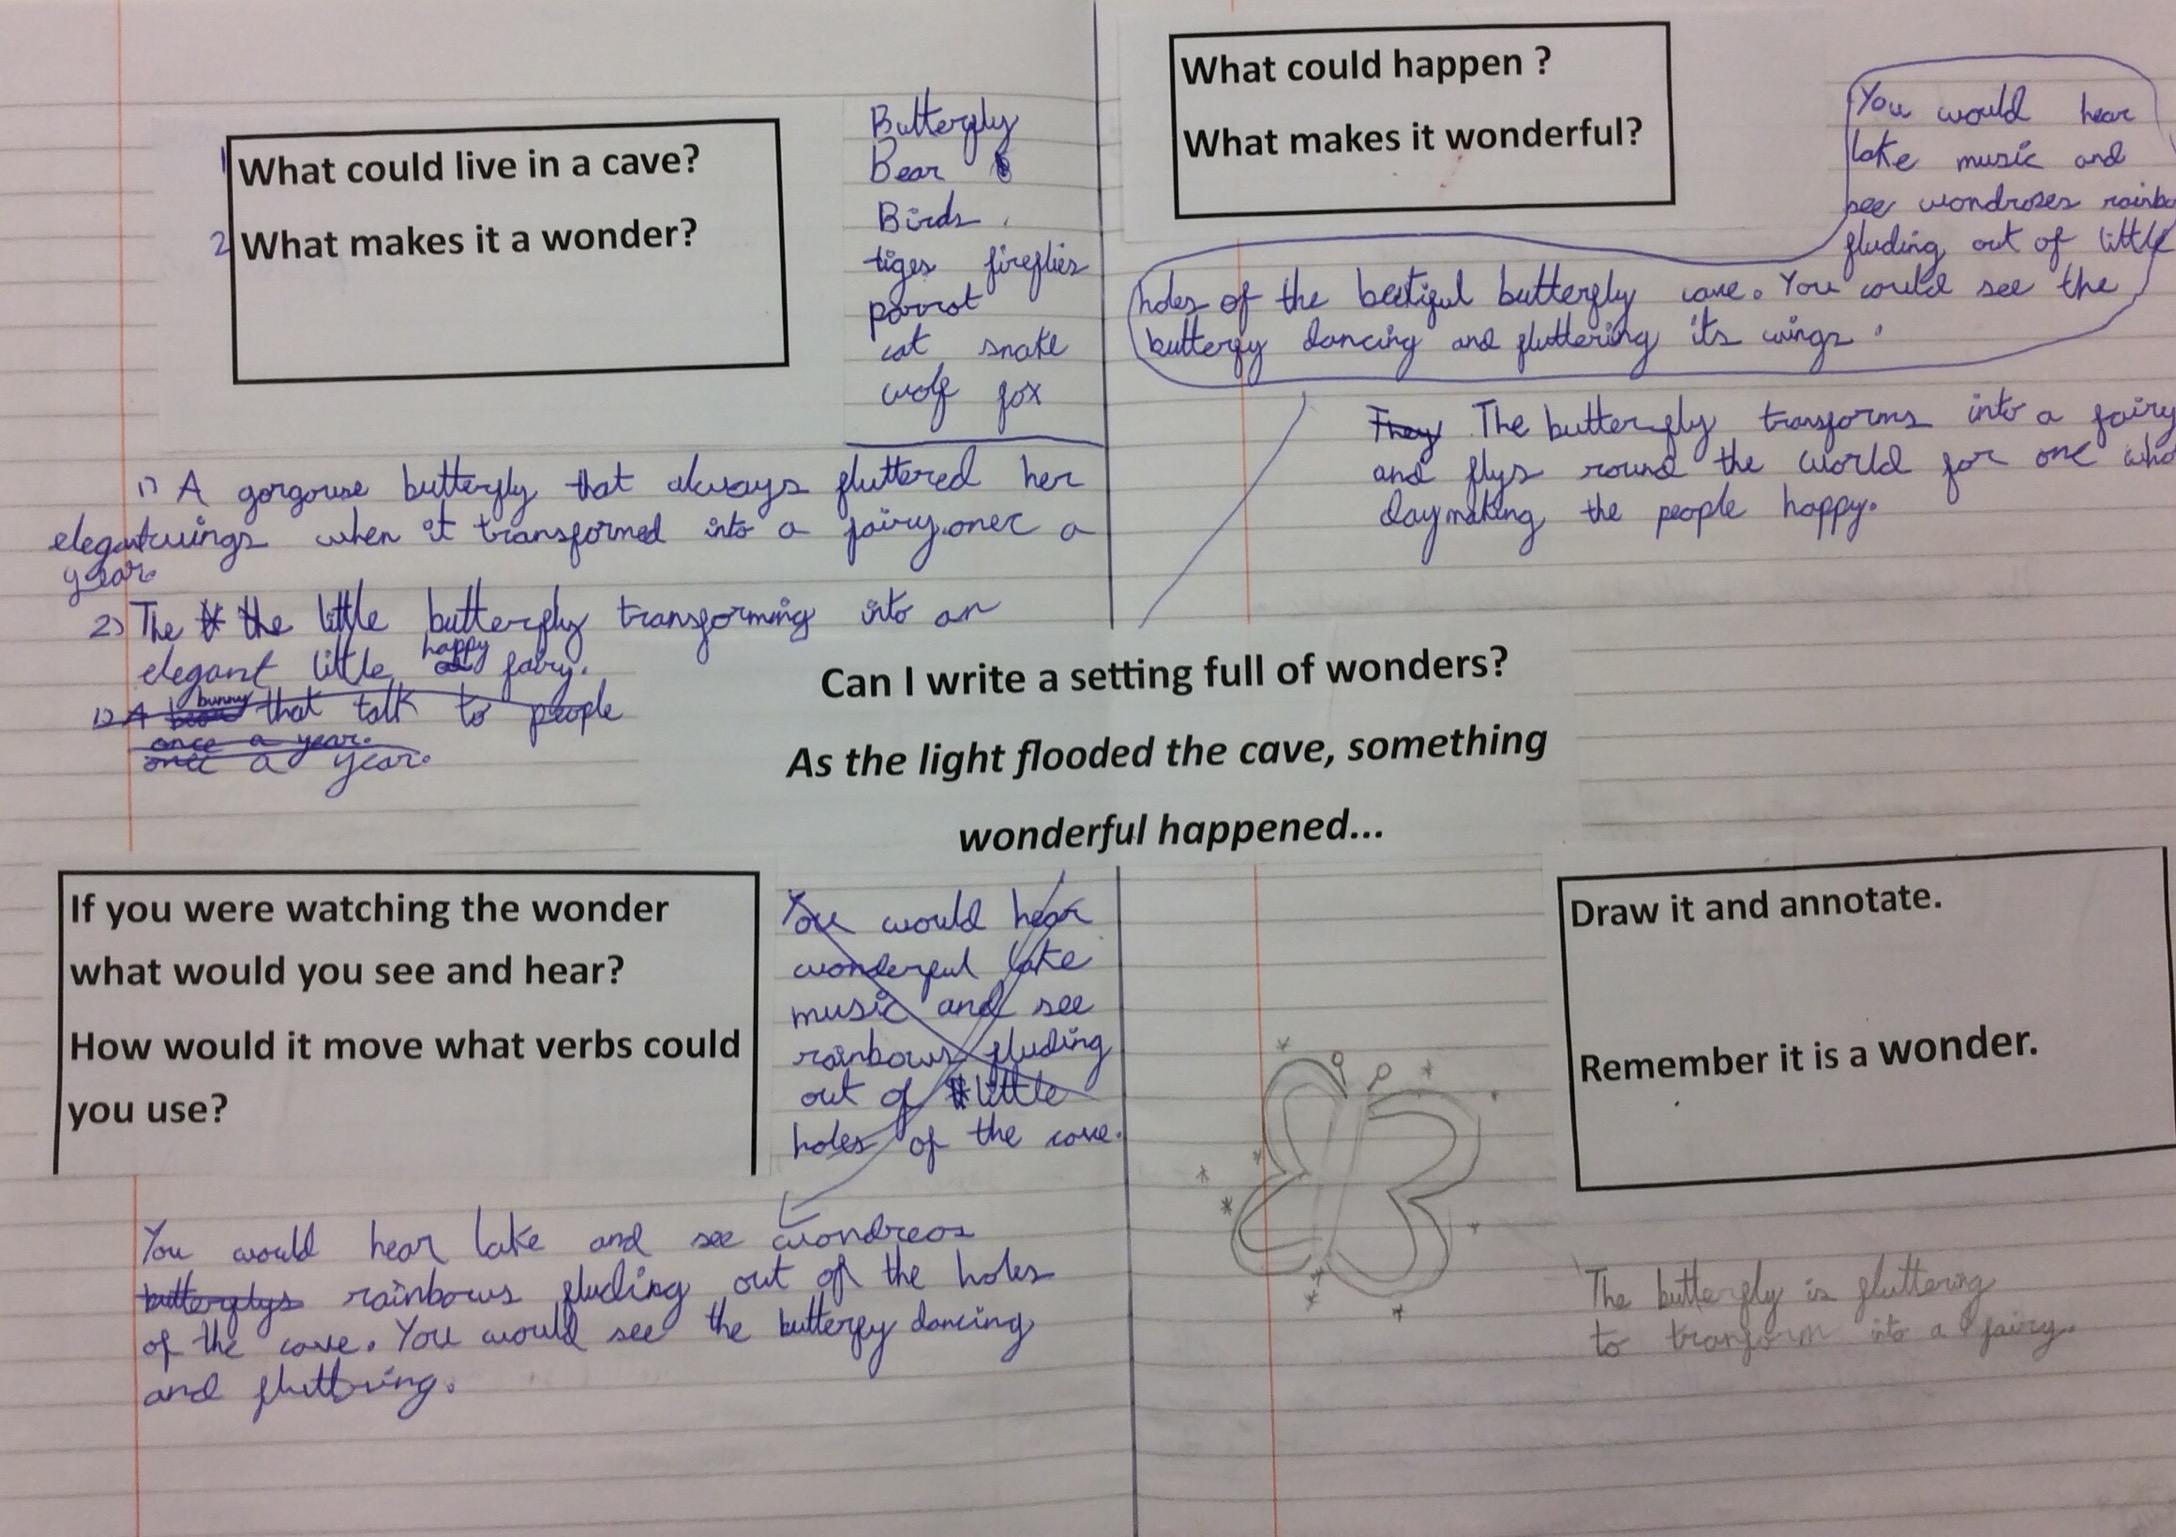 1 What could live in a cave?
2 What makes it a wonder?
Butterfly
Bear
Birds
tiges fireflies
parrot
cat snake
wolf fox
1) A gorgouse butterfly that always fluttered her
elegant wings when it transformed into a fairy oner a
year.
2) The the little butterfly transforming into an
elegant little happy fairy.
1) A bunny that talk to people
once a year.
once a year.
What could happen ?
What makes it wonderful?
You would hear
lake music and
see wondroses rainbo
fluding out of little
holes of the beatiful butterfly cave. You could see the
butterfy dancing and fluttering its wings.
They The butterfly transforms into a fairy
and flys round the world for one who
day making the people happy.
Can I write a setting full of wonders?
As the light flooded the cave, something
wonderful happened...
If you were watching the wonder
what would you see and hear?
How would it move what verbs could
you use?
You would hear
wonderful lake
music and see
rainbows fluding
out of little
holes of the cave.
You would hear lake and see wondreos
butterflys rainbows fluding out of the holes
of the cave. You would see the butterfy dancing
and fluttring.
Draw it and annotate.
Remember it is a wonder.
The butterfly is fluttering
to tranform into a fairy.